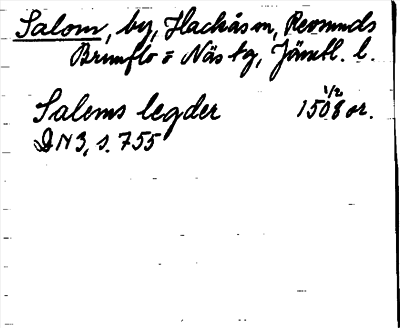 Salom, by, Hackås sn, Revsunds
Brunflo o Näs tg, Jämtl. l.
1/2
Salems legder 1508 or.
DN3, s. 755